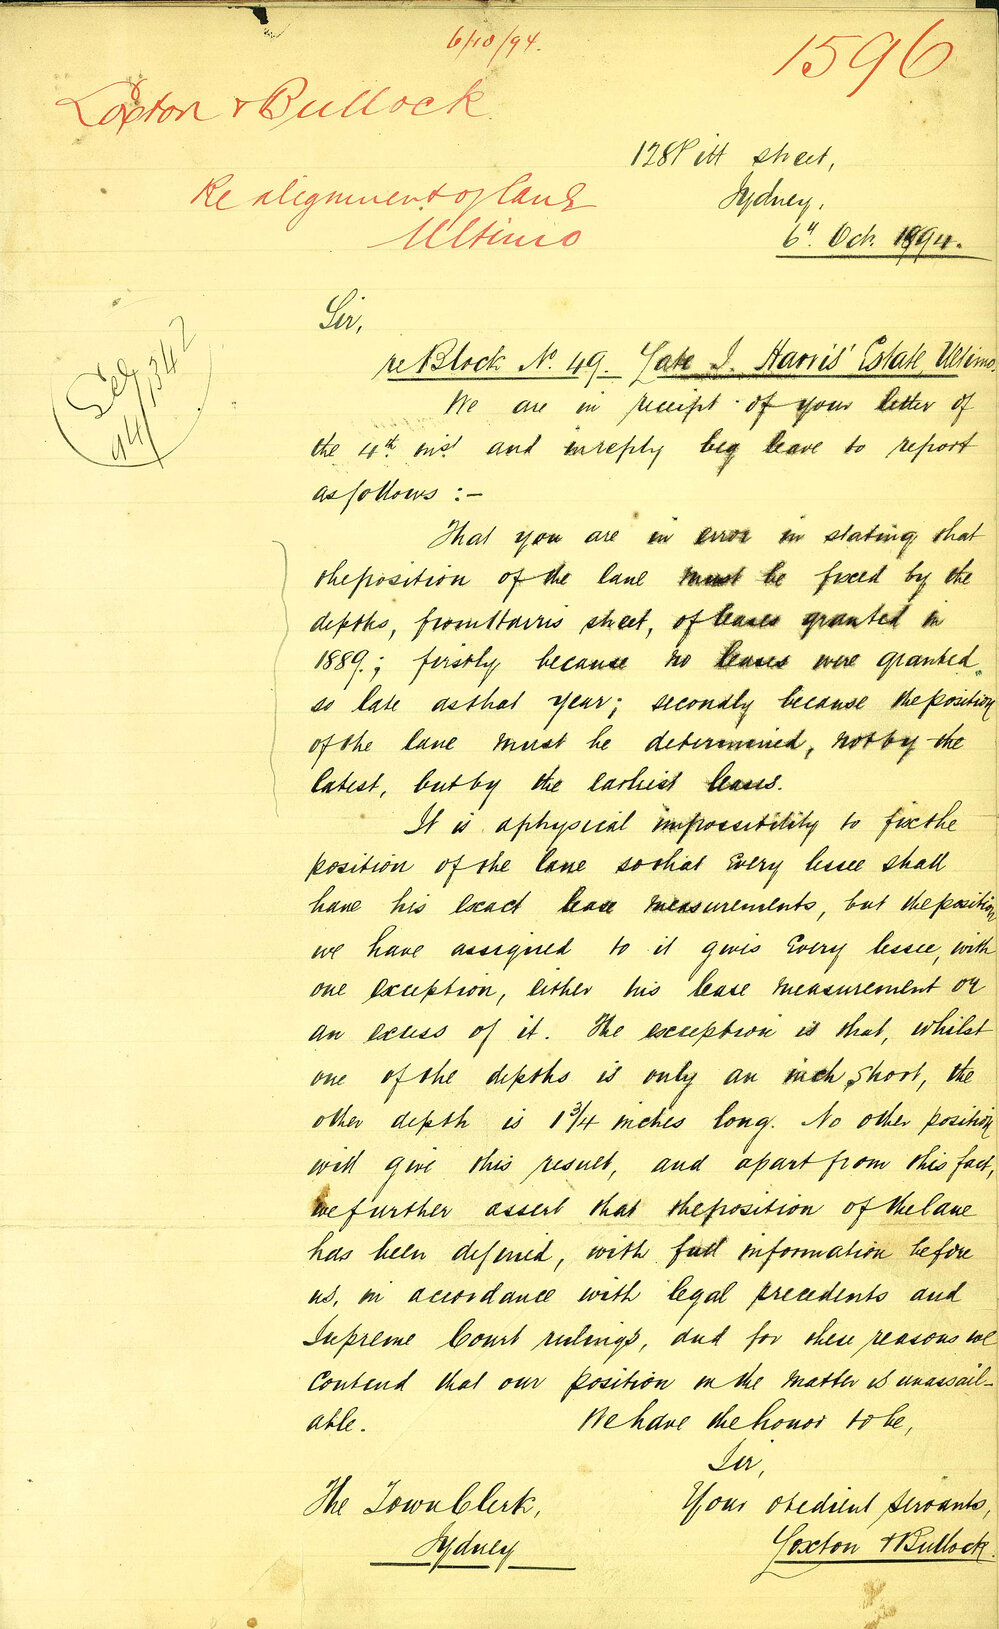 6/10/94.
1596
Loxton & Bullock.
128 Pitt street,
Re alignment of lane
Ultimo
Sydney,
6th Oct. 1894.
Sir,
94/1342
re Block No. 49. Late J. Harris' Estate, Ultimo.
We are in receipt of your letter of
the 4th inst and in reply beg leave to report
as follows :—
That you are in error in stating that
the position of the lane must be fixed by the
depths, from Harris street, of leases granted in
1889.; firstly because no leases were granted
so late as that year; secondly because the position
of the lane must be determined, not by the
latest, but by the earliest leases.
It is a physical impossibility to fix the
position of the lane so that every lessee shall
have his exact lease measurements, but the position
we have assigned to it gives every lessee, with
one exception, either his lease measurement or
an excess of it. The exception is that, whilst
one of the depths is only an inch short, the
other depth is 1 3/4 inches long. No other position
will give this result, and apart from this fact,
we further assert that the position of the lane
has been defined, with full information before
us, in accordance with legal precedents and
Supreme Court rulings, and for these reasons we
contend that our position in the matter is unassail-
able. We have the honor to be,
Sir,
The Town Clerk, Your obedient servants,
Sydney Loxton & Bullock.